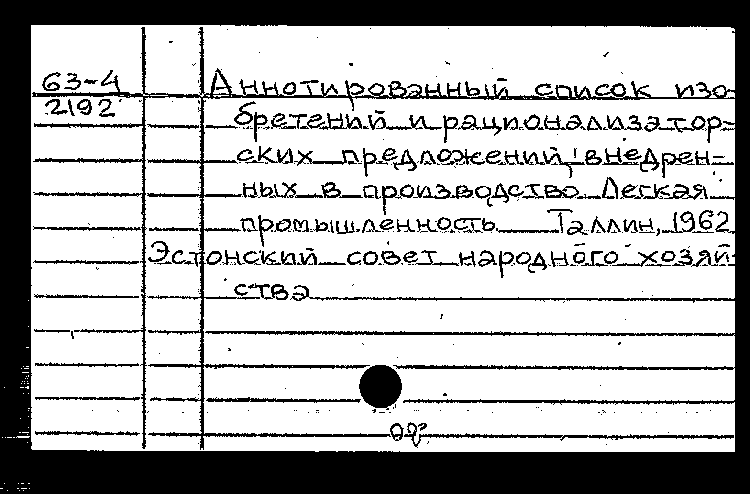 63-4
2192
Аннотированный список изо-
бретений и рационализатор-
ских предложений, внедрен-
ных в производство. Легкая
промышленность. Таллин, 1962
Эстонский совет народного хозяй-
ства